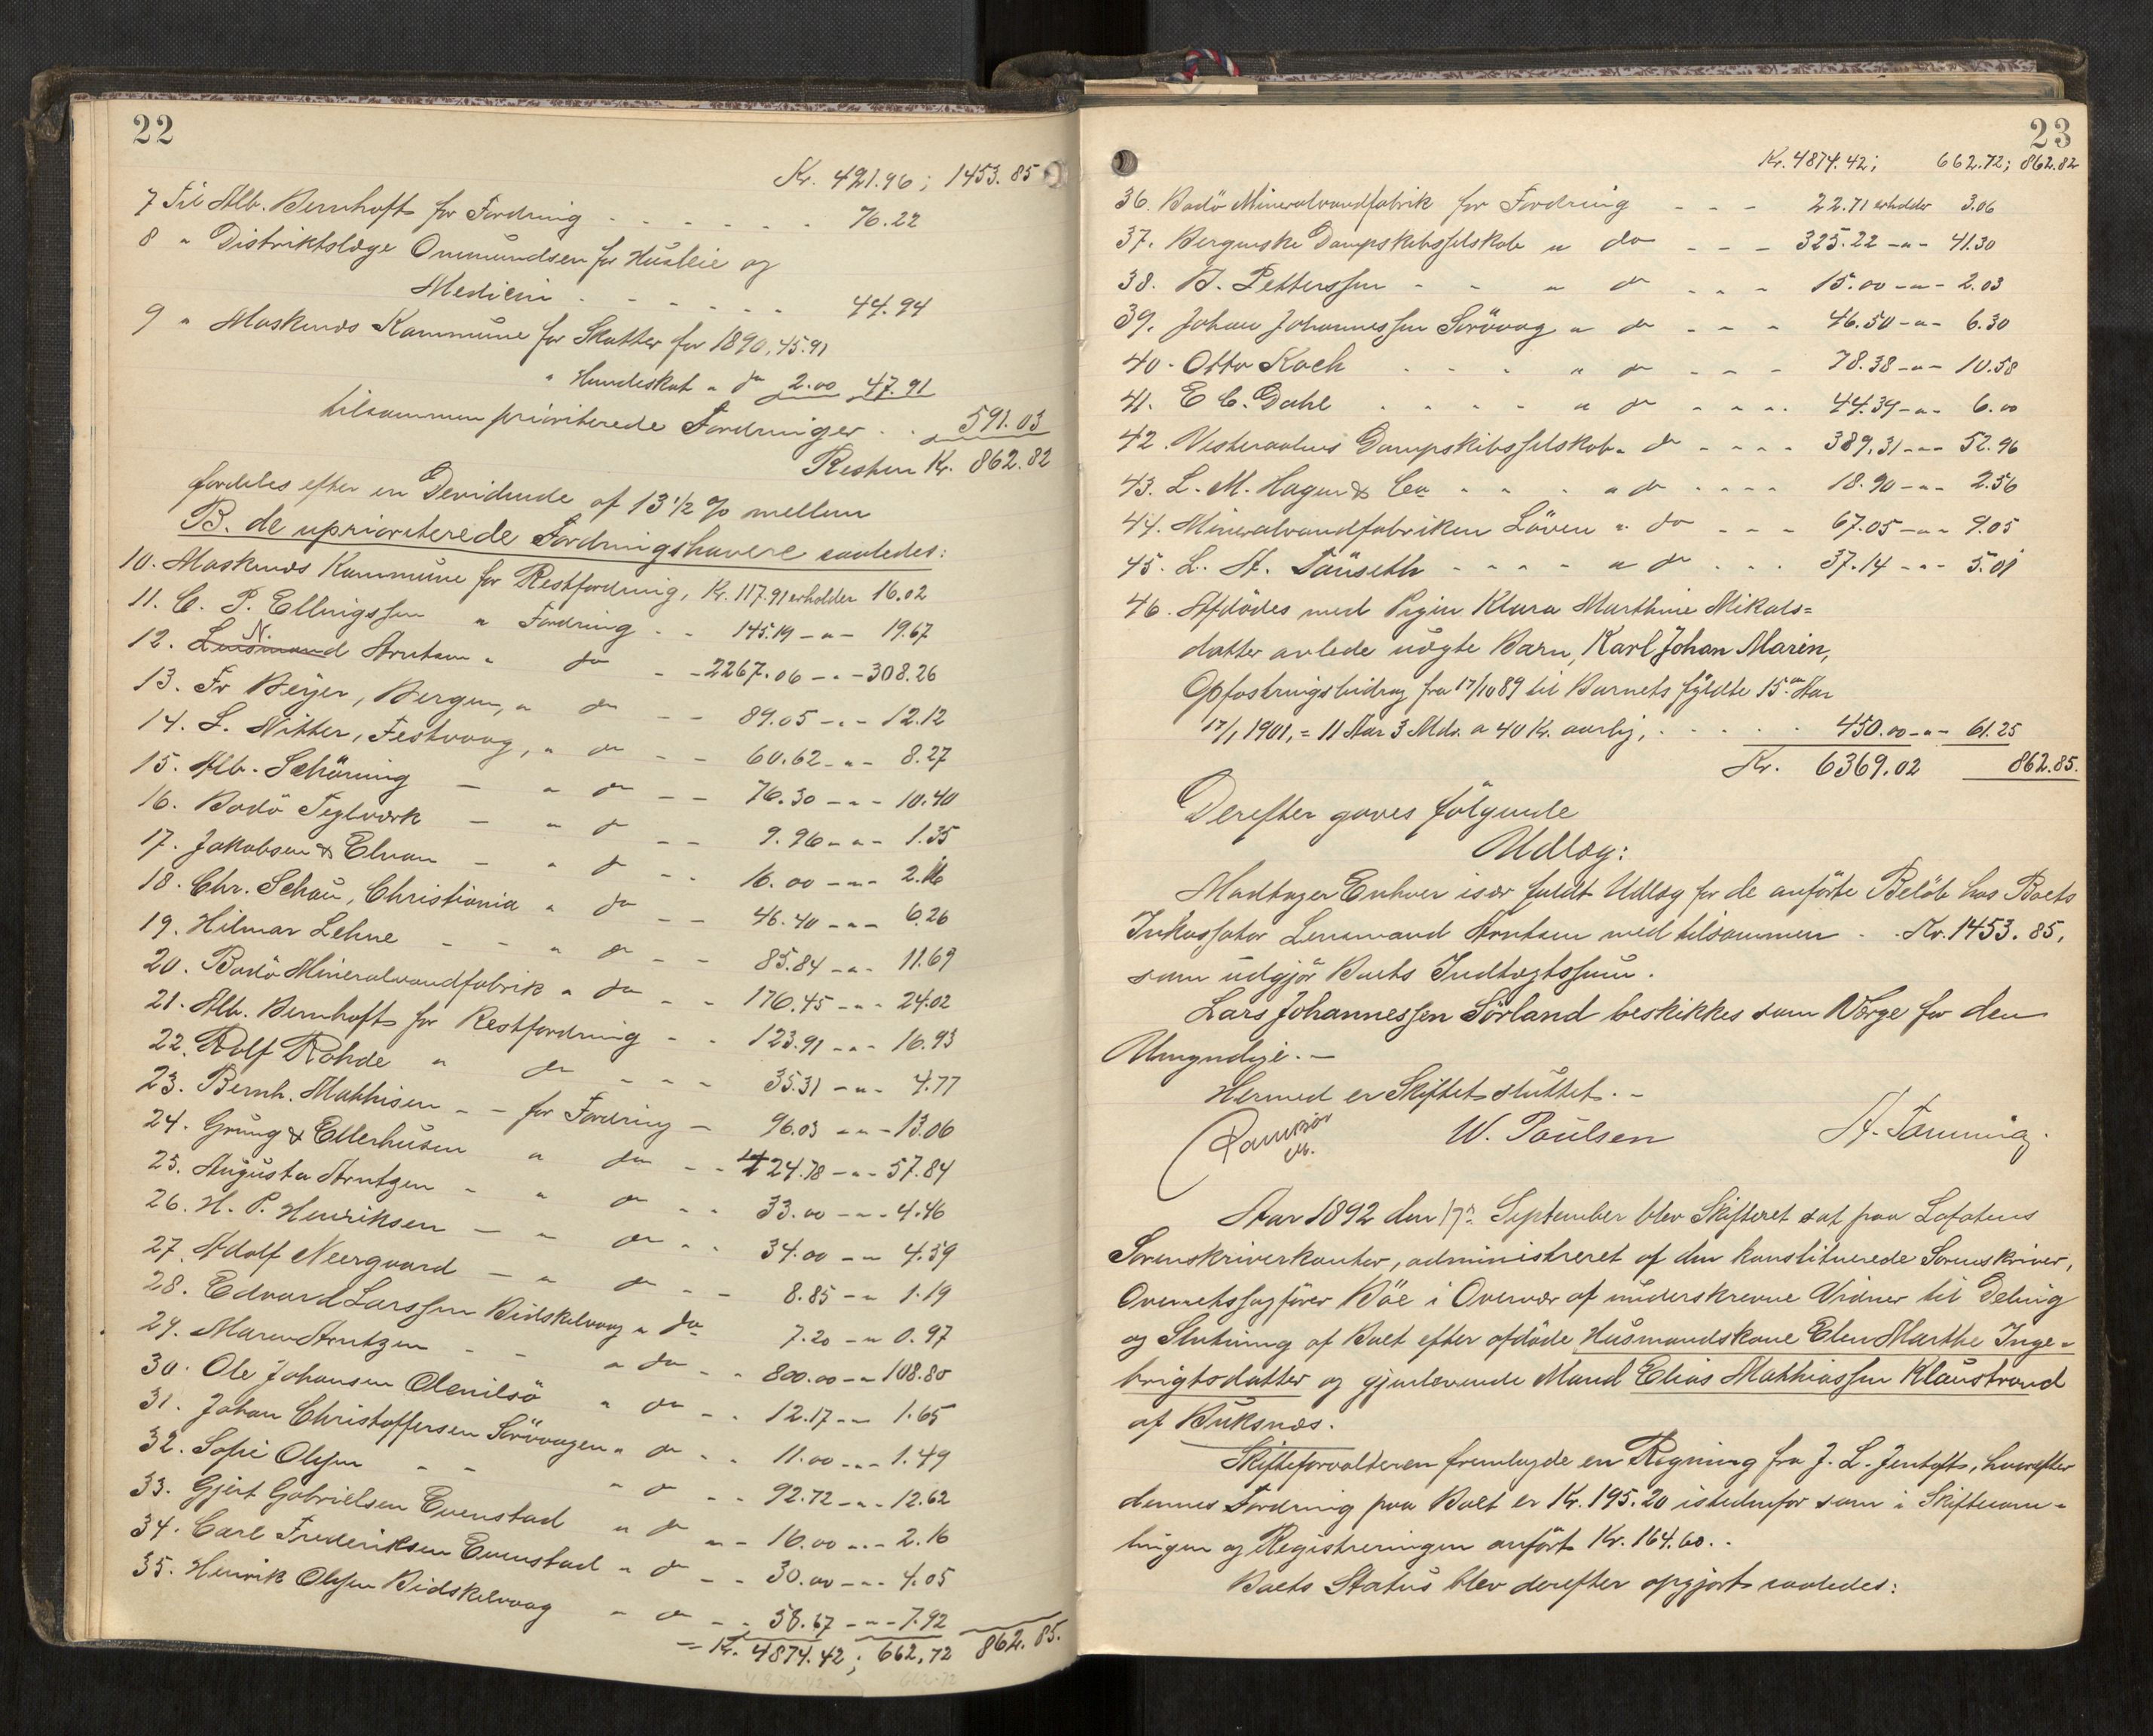 22
Kr. 421.96; 1453.85
7 Til Alb. Bernhoft for Fordring - - - - - 76.22
8 " Distriktslæge Ommundsen for Husleie og
Medicin - - - - - 44.94
9 " Moskenæs Kommune for Skatter for 1890, 45.91
" Hundeskat " do 2.00 47.91
tilsammen prioriterede Fordringer . . 591.03
Resten Kr. 862.82
fordeles efter en Devidende af 13 1/2 % mellem
B. de uprioriterede Fordringshavere saaledes:
10. Moskenæs Kommune for Restfordring, Kr. 117.91 erholder 16.02
11. C. P. Ellingssen " Fordring - - 145.19 - " - 19.67
12. Lensmand N. Arntsen " do - - 2267.06 - " - 308.26
13. Fr Beijer, Bergen, " do - - 89.05 - " - 12.12
14. L. Nitter, Festvaag, " do - - 60.62 - " - 8.27
15. Alb. Schöning - " do - - 76.30 - " - 10.40
16. Bodö Teglværk - " do - - 9.96 - " - 1.35
17. Jakobsen & Elvan - " do - - 16.00 - " - 2.16
18. Chr. Schou, Christiania " do - - 46.40 - " - 6.26
19. Hilmar Lehne - - " do - - 85.84 - " - 11.69
20. Bodö Mineralvandfabrik " do - - 176.45 - " - 24.02
21. Alb. Bernhoft for Restfordring - - 123.91 - " - 16.93
22. Rolf Rohde " do - - - 35.31 - " - 4.77
23. Bernh. Mathisen - - for Fordring - 96.03 - " - 13.06
24. Grung & Ellerhusen " do - - 424.78 - " - 57.84
25. Augusta Arntzen - " do - - 33.00 - " - 4.46
26. H. P. Henriksen - " do - - 34.00 - " 4.59
27. Adolf Neergaard - " do - - 8.85 - " 1.19
28. Edvard Larssen Bidskelvaag " do 7.20 - " 0.97
29. Maren Arntzen - - " do - - 800.00 - " 108.80
30. Ole Johansen Olenilsö " do - - 12.17 - " 1.65
31. Johan Christoffersen Sörvaagen " do - - 11.00 - " - 1.49
32. Sofie Olsen - - " do - - 92.72 - " - 12.62
33. Gjert Gabrielsen Evenstad " do - - 16.00 - " - 2.16
34. Carl Frederiksen Evenstad " do - - 30.00 - " - 4.05
35. Henrik Olsen Bidskelvaag " do - - 58.67 - " - 7.92
= Kr. 4874.42; 662.72 862.85.
23
Kr. 4874.42; 662.72; 862.82
36. Bodö Mineralvandfabrik for Fordring - - - 22.71 erholder 3.06
37. Bergenske Dampskibsselskab " do - - - 325.22 - " - 41.30
38. B. Petterssen - - " do - - - 15.00 - " - 2.03
39. Johan Johannessen Sörvaag " do - - - 46.50 - " - 6.30
40. Otto Koch - - - " do - - - 78.38 - " - 10.58
41. E C. Dahl - - - - " do - - - 44.39 - " - 6.00
42. Vesteraalens Dampskibsselskab " do - - - 389.31 - " - 52.96
43. L. M. Hagen & Co " - - " do - - - 18.90 - " - 2.56
44. Mineralvandfabriken Löven " do - - - 67.05 - " - 9.05
45. L. A. Tauseth - - - - " do - - - 37.14 - " - 5.01
46. Afdödes med Pigen Klara Marthine Nikols=
datter avlede uægte Barn, Karl Johan Marin,
Opfostringsbidrag fra 17/10 89 til Barnets fyldte 15de Aar
17/1 1901, = 11 Aar 3 Mdr. a 40 Kr. aarlig, - - - - 450.00 - " - 61.25
Kr. 6369.02 862.85.
Derefter gaves følgende
Udlæg:
Modtager Enhver især fuldt Udlæg for de anførte Beløb hos Boets
Inkassator Lensmand Arntsen med tilsammen - . Kr. 1453.85,
som udgjør Boets Indtægtssum.
Lars Johannessen Sörland beskikkes som Værge for den
Umyndige. -
Hermed er Skiftet sluttet. -
W. Paulsen A. Tanning.
Aar 1892 den 17de September blev Skifteret sat paa Lofotens
Sorenskriverkontor, administreret af den konstituerede Sorenskriver,
Overretssagfører Böe i Overvær af underskrevne Vidner til Deling
og Slutning af Boet efter afdøde Husmandskone Elen Marthe Inge-
brigtsdatter og gjenlevende Mand Elias Mathiassen Klaustrand
af Buksnæs.
Skifteforvalteren fremlagde en Regning fra J. L. Jentoft, hvorefter
dennes Fordring paa Boet er Kr. 195.20 istedenfor som i Skiftesam-
lingen og Registreringen anført Kr. 164.60. .
Boets Status blev derefter opgjort saaledes: